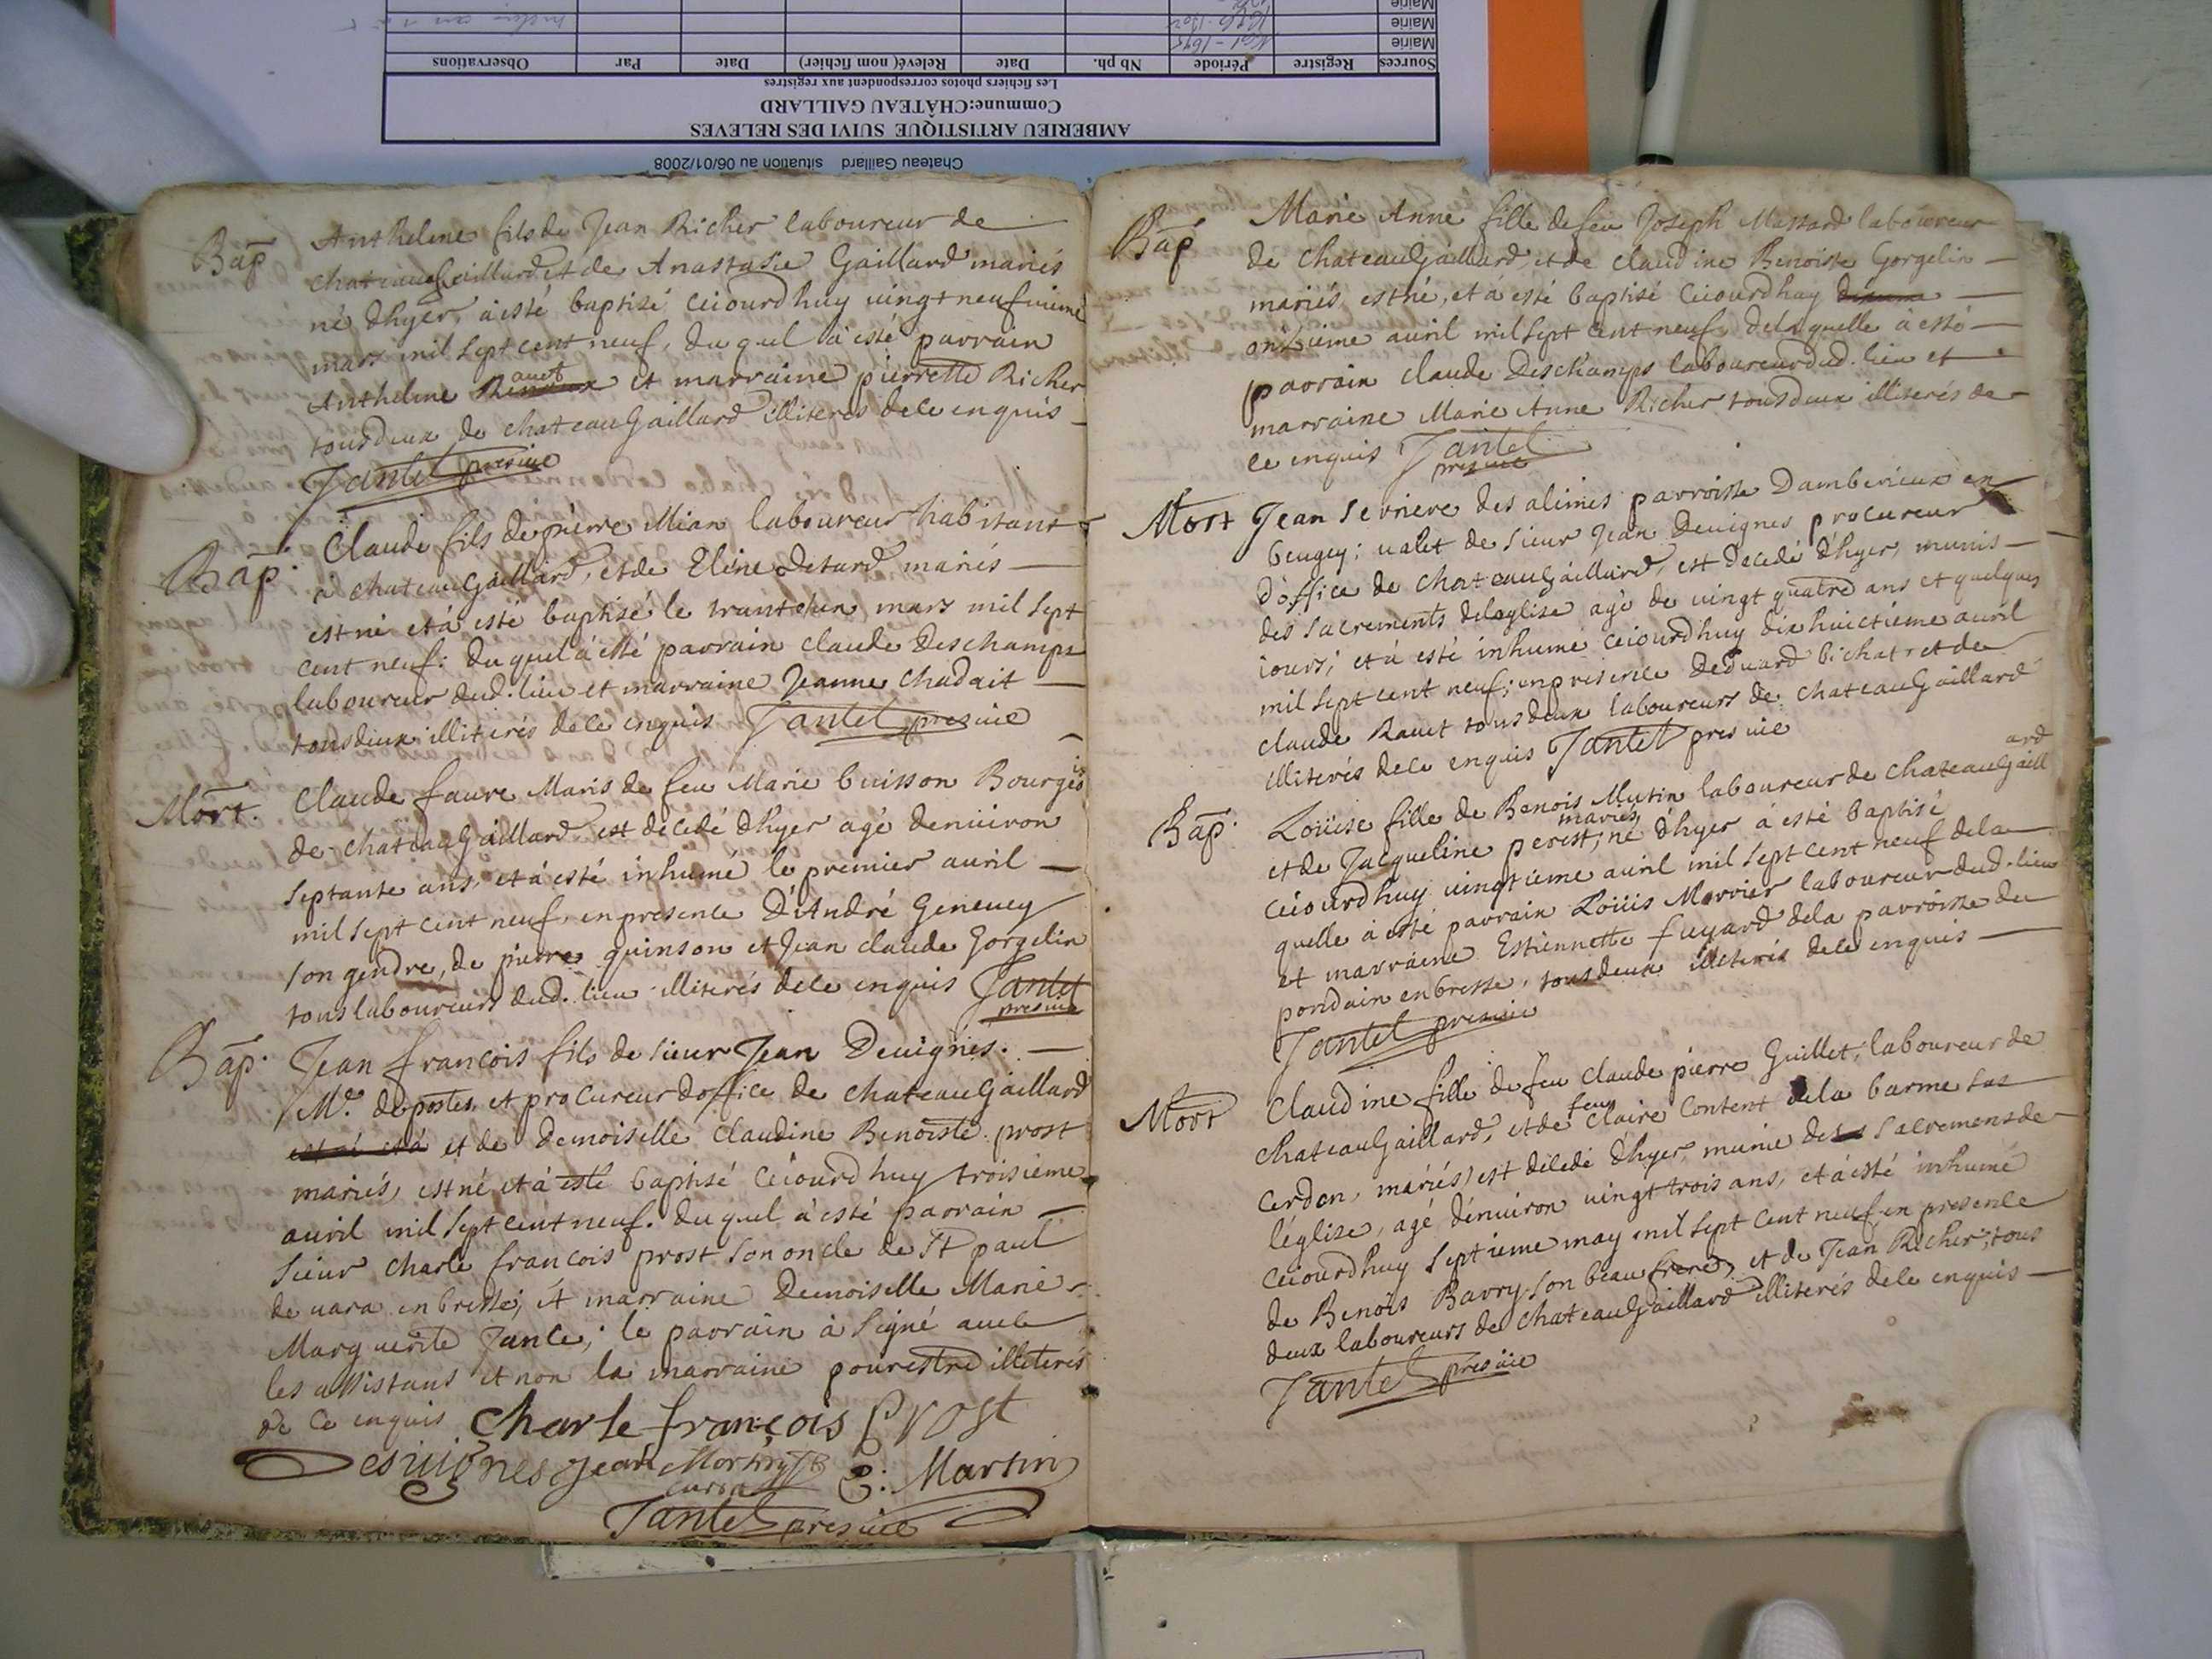 Chateau Gaillard situation au 06/01/2008
AMBERIEU ARTISTIQUE SUIVI DES RELEVES
Commune:CHÂTEAU GAILLARD
Les fichiers photos correspondent aux registres
Sources Registre Période Nb ph. Date Relevé( nom fichier) Date Par Observations
Mairie
Mairie
Mairie
Bap
Anthelme fils de Jean Richer laboureur de
chateaugaillard et de Anastasie Gaillard mariés
né d'hyer, à esté baptisé ceiourdhuy uingt neufuieme
mars mil sept cent neuf, du quel à esté parrain
Anthelme et marraine pierrette Richer
tousdeux de chateauGaillard illiterés de ce enquis
Jantet presuice
Bap.
Claude fils de pierre Mian laboureur habitant
à chateauGaillard, et de Eléne Detard mariés
est né et à esté baptisé le trunt'e un mars mil sept
cent neuf: du quel à esté parrain claude Deschamps
laboureur dud. lieu et marraine Jeanne chadait
tousdeux illiterés de ce enquis Jantet presuice
Mort.
Claude faure Maris de feu Marie buisson Bourgeois
de chateauGaillard est décedé d'hyer agé denuiron
septante ans, et à esté inhumé le premier auril
mil sept cent neuf, en presence D'André Geneuey
son gendre, de pierre quinson et Jean claude Gorgelin
tous laboureurs dud. lieu illiterés de ce enquis Jantet
presuice
Bap.
Jean francois fils de sieur Jean Deuignes.
Me. de postes, et procureur doffice de chateauGaillard
est né et à et de Demoiselle Claudine Benoiste prost
mariés, est né et à esté baptisé ceiourdhuy troisieme
auril mil sept cent neuf. du quel à esté parrain
sieur Charle francois prost son oncle de St paul
de uara en bresse; et marraine Demoiselle Marie
Marguerite Jante; le parrain à signé auec
les assistans et non la marraine pour estre illiteres
de ce enquis Charle françois Prost
Desuignes Jean Martin
C: Martin
Jantet presuice
Bap
Marie Anne fille de feu Joseph Massard laboureur
de chateauGaillard, et de claudine Benoiste Gorgelin
mariés est né, et à esté baptisé ceiourdhuy
onzieme auril mil sept cent neuf, de laquelle à esté
parrain claude Deschamps laboureur dud. lieu et
marraine Marie Anne Richer tousdeux illiterés de
ce enquis Jantet
presuice
Mort
Jean Seuriere des alimes parroisse Dambérieux en
beugey: ualet de sieur Jean Deuignes procureur
d'office de chateauGaillard, est décedé d'hyer, munis
des sacrements de leglise agé de uingt quatre ans et quelques
iours; et à esté inhumé ceiourdhuy dix huictieme auril
mil sept cent neuf; en presence Deduard bichat et de
claude Rauet tous deux laboureurs de chateauGaillard
illiterés de ce enquis Jantet presuice
Bap.
Loüise fille de Benois Mutin laboureur de chateauGaillard
et de Jacqueline perest, mariés né d'hyer à esté baptisé
ceiourdhuy uingtieme auril mil sept cent neuf de la
quelle à esté parrain Loüis Moruier laboureur dud. lieu
et marraine Estiennette fuyard de la parroisse de
pondain en bresse, tous deux illiterés de ce enquis
Jantet presuice
Mort
Claudine fille de feu claude pierre Guillet, laboureur de
chateauGaillard, et de feue Claire Content de la barme sur
Cerdon, mariés, est décedé d'hyer, munie des sacremens de
l'église, agé d'enuiron uingt trois ans, et à esté inhumé
ceiourdhuy septieme may mil sept cent neuf en presence
de Benois Barry son beau frere, et de Jean Richer, tous
deux laboureurs de chateauGaillard illiterés de ce enquis
Jantet presuice